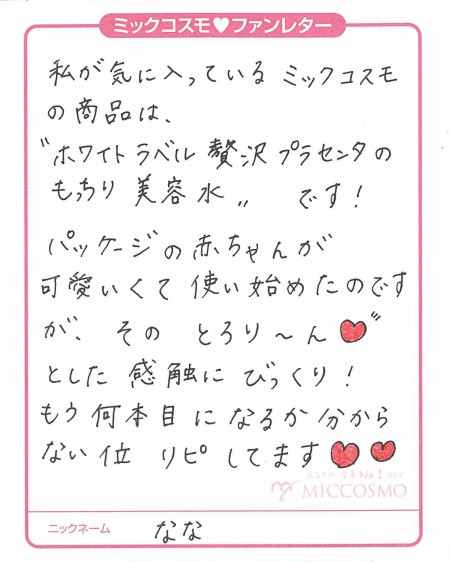 ミックコスモ♥ファンレター
私が気に入っているミックコスモ
の商品は、
〝ホワイトラベル贅沢プラセンタの
もっちり美容水〟です！
パッケージの赤ちゃんが
可愛いくて使い始めたのです
が、そのとろり〜ん♥〟
とした感触にびっくり！
もう何本目になるか分から
ない位リピしてます♥♥
No1
MICCOSMO
ニックネーム なな